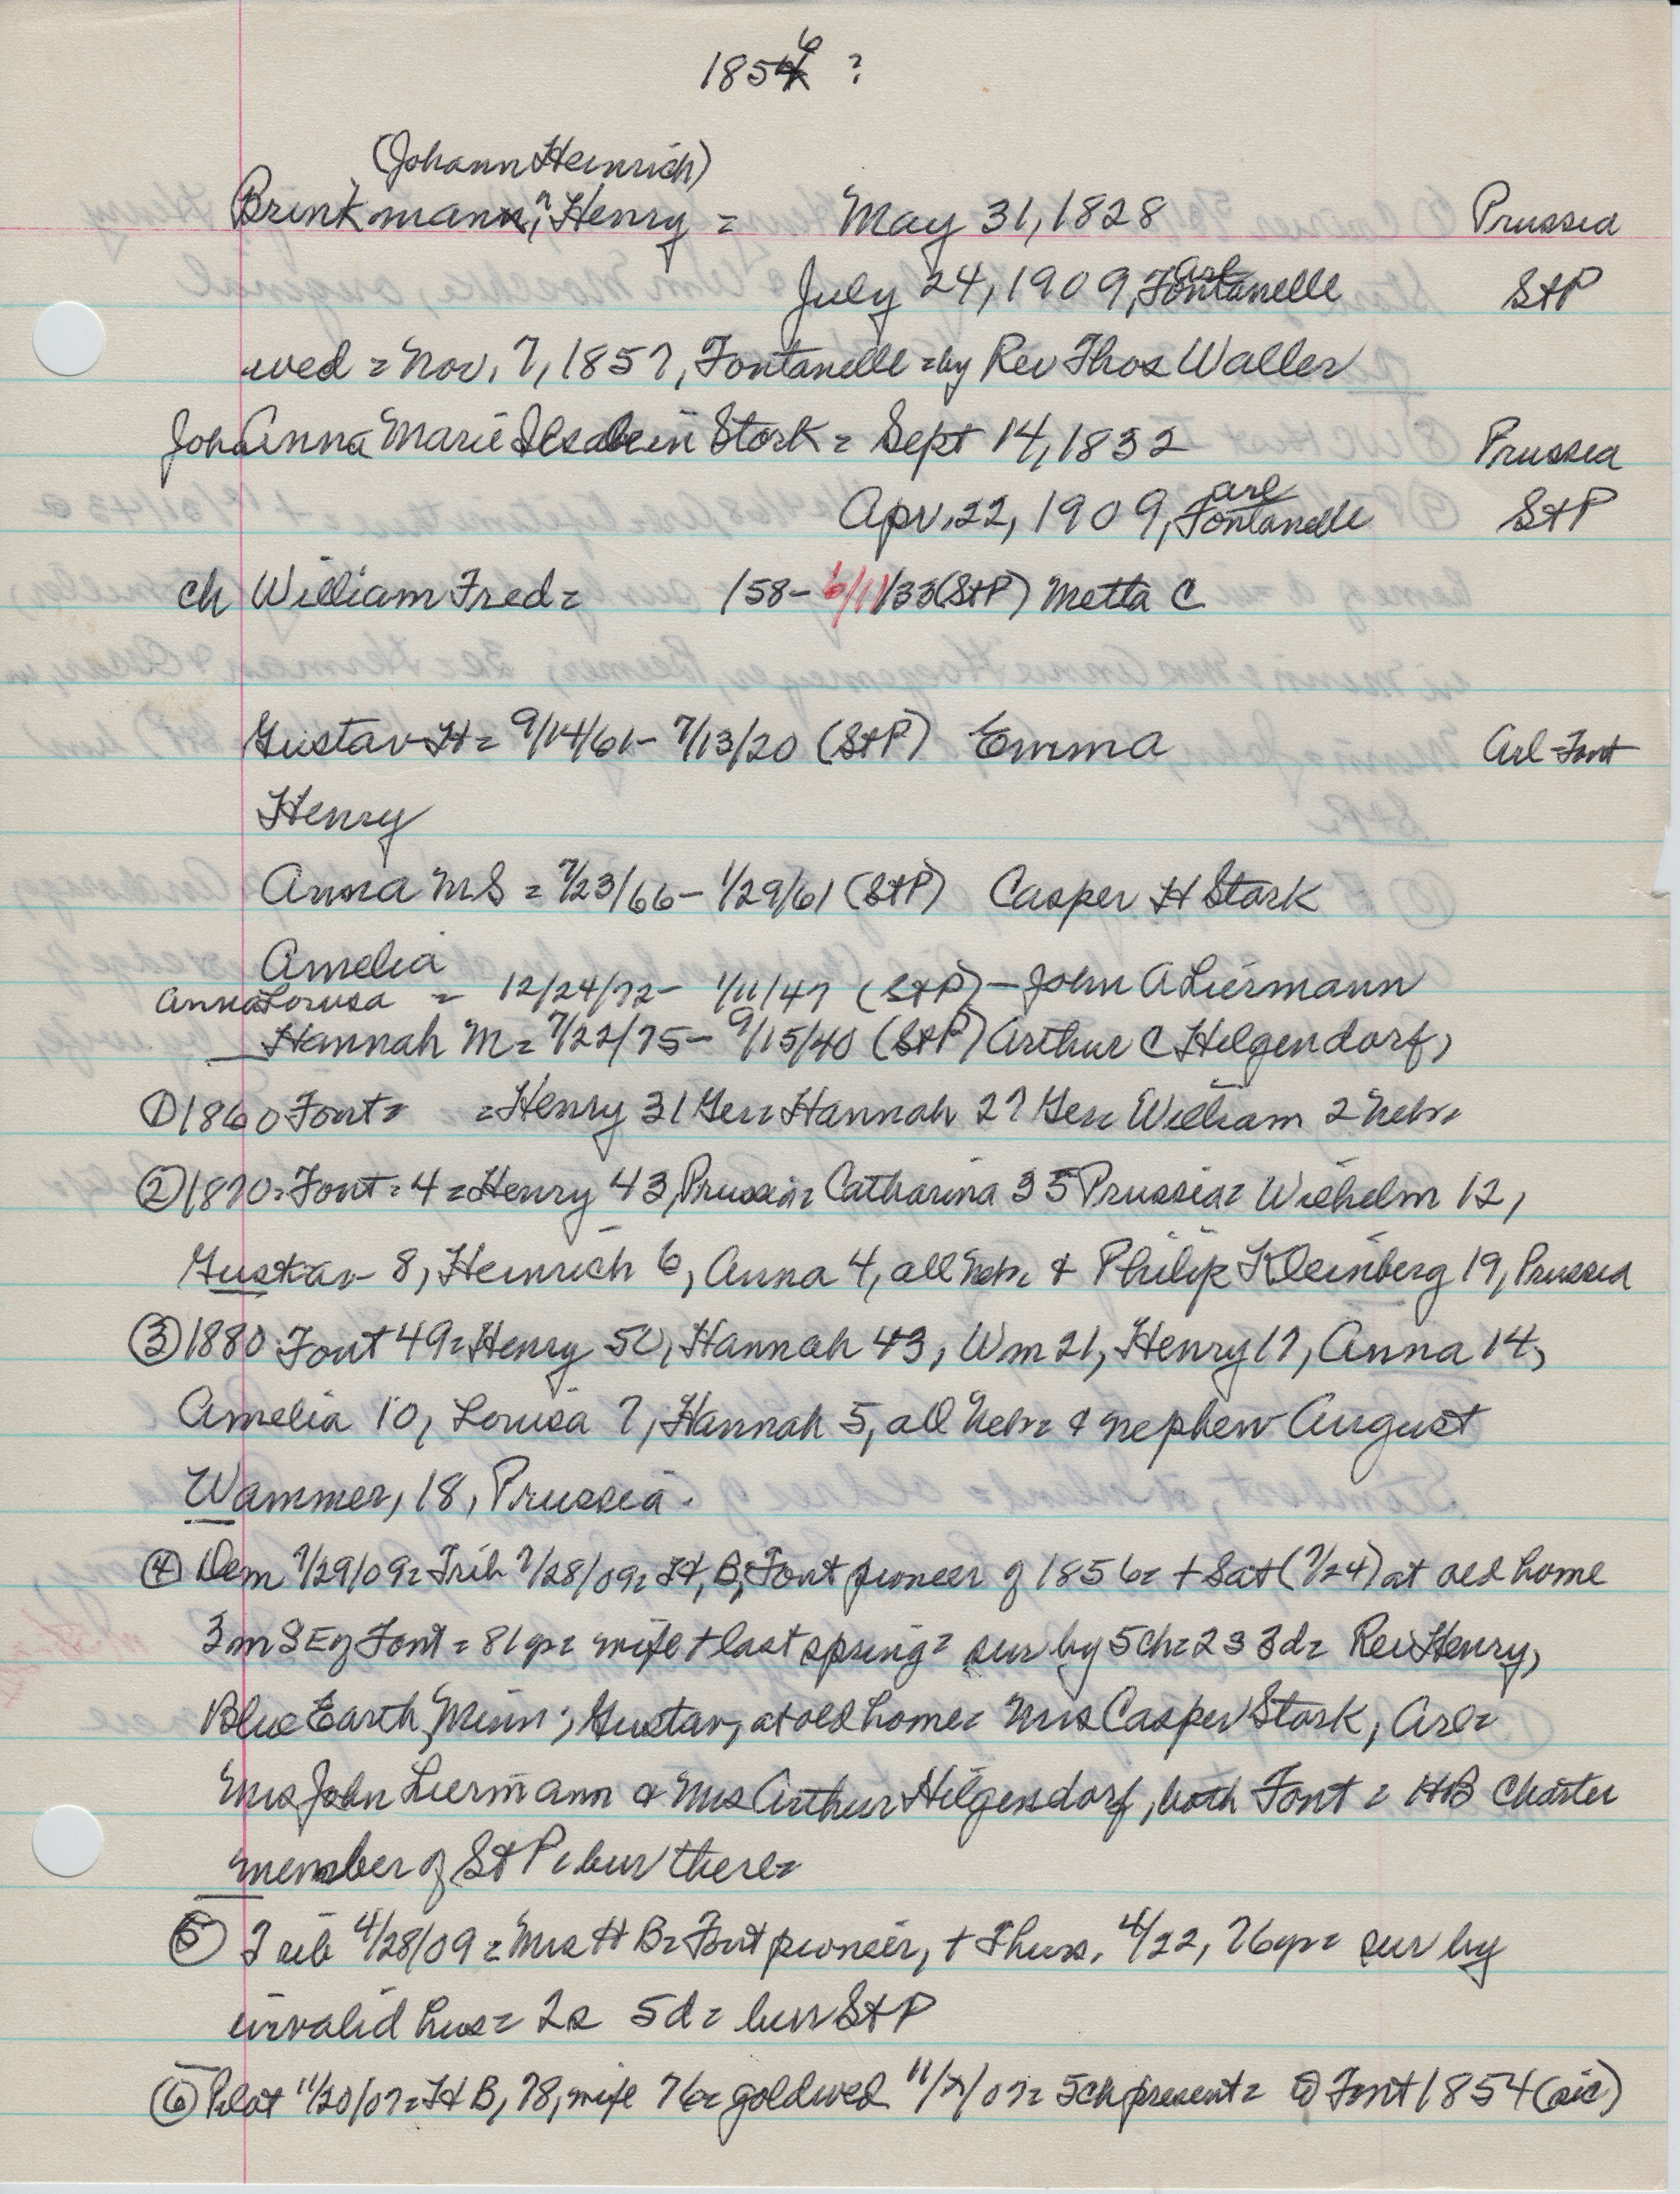 1856 ?
(Johann Heinrich)
Brinkmann, Henry = May 31, 1828 Prussia
July 24, 1909, Arl Fontanelle St P
wed = Nov. 7, 1857, Fontanelle = by Rev Thos Waller
JohAnna Marie Ilsabein Stork = Sept 14, 1832 Prussia
Apr. 22, 1909, Arl Fontanelle St P
ch William Fred = /58 - 6/11/33 (St P) Metta C
Gustav H = 9/14/61 - 7/13/20 (St P) Emma Arl - Font
Henry
Anna M S = 7/23/66 - 1/29/61 (St P) Casper H Stork
Amelia
Anna Lousa = 12/24/72 - 1/11/47 (St P) - John A Liermann
Hannah M = 7/22/75 - 9/15/40 (St P) Arthur C Hilgendorf,
① 1860 Font = = Henry 31 Ger = Hannah 27 Ger = William 2 Nebr =
② 1870 = Font = 4 = Henry 43, Prussia = Catharina 35 Prussia = Wilhelm 12,
Gustav 8, Heinrich 6, Anna 4, all Nebr & Philip Kleinberg 19, Prussia
③ 1880 Font 49 = Henry 50, Hannah 43, Wm 21, Henry 17, Anna 14,
Amelia 10, Louisa 7, Hannah 5, all Nebr = & nephew August
Wammer, 18, Prussia.
④ Dem 7/29/09 = Trib 7/28/09 = H, B, Font pioneer of 1856 = + Sat (7/24) at old home
3 m SE of Font = 81 yr = wife + last spring = sur by 5 ch = 2s 3d = Rev Henry,
Blue Earth, Minn; Gustav, at old home = Mrs Casper Stork, Arl =
Mrs John Liermann & Mrs Arthur Hilgendorf, both Font = HB Charter
member of St P = bur there =
⑤ Trib 4/28/09 = Mrs H B = Font pioneer, + Thurs. 4/22, 76 yr = sur by
invalid hus = 2s 5d = bur St P
⑥ Pilot 11/20/07 = H B, 78, wife 76 = gold wed 11/7/07 = 5 ch present = Font 1854 (sic)